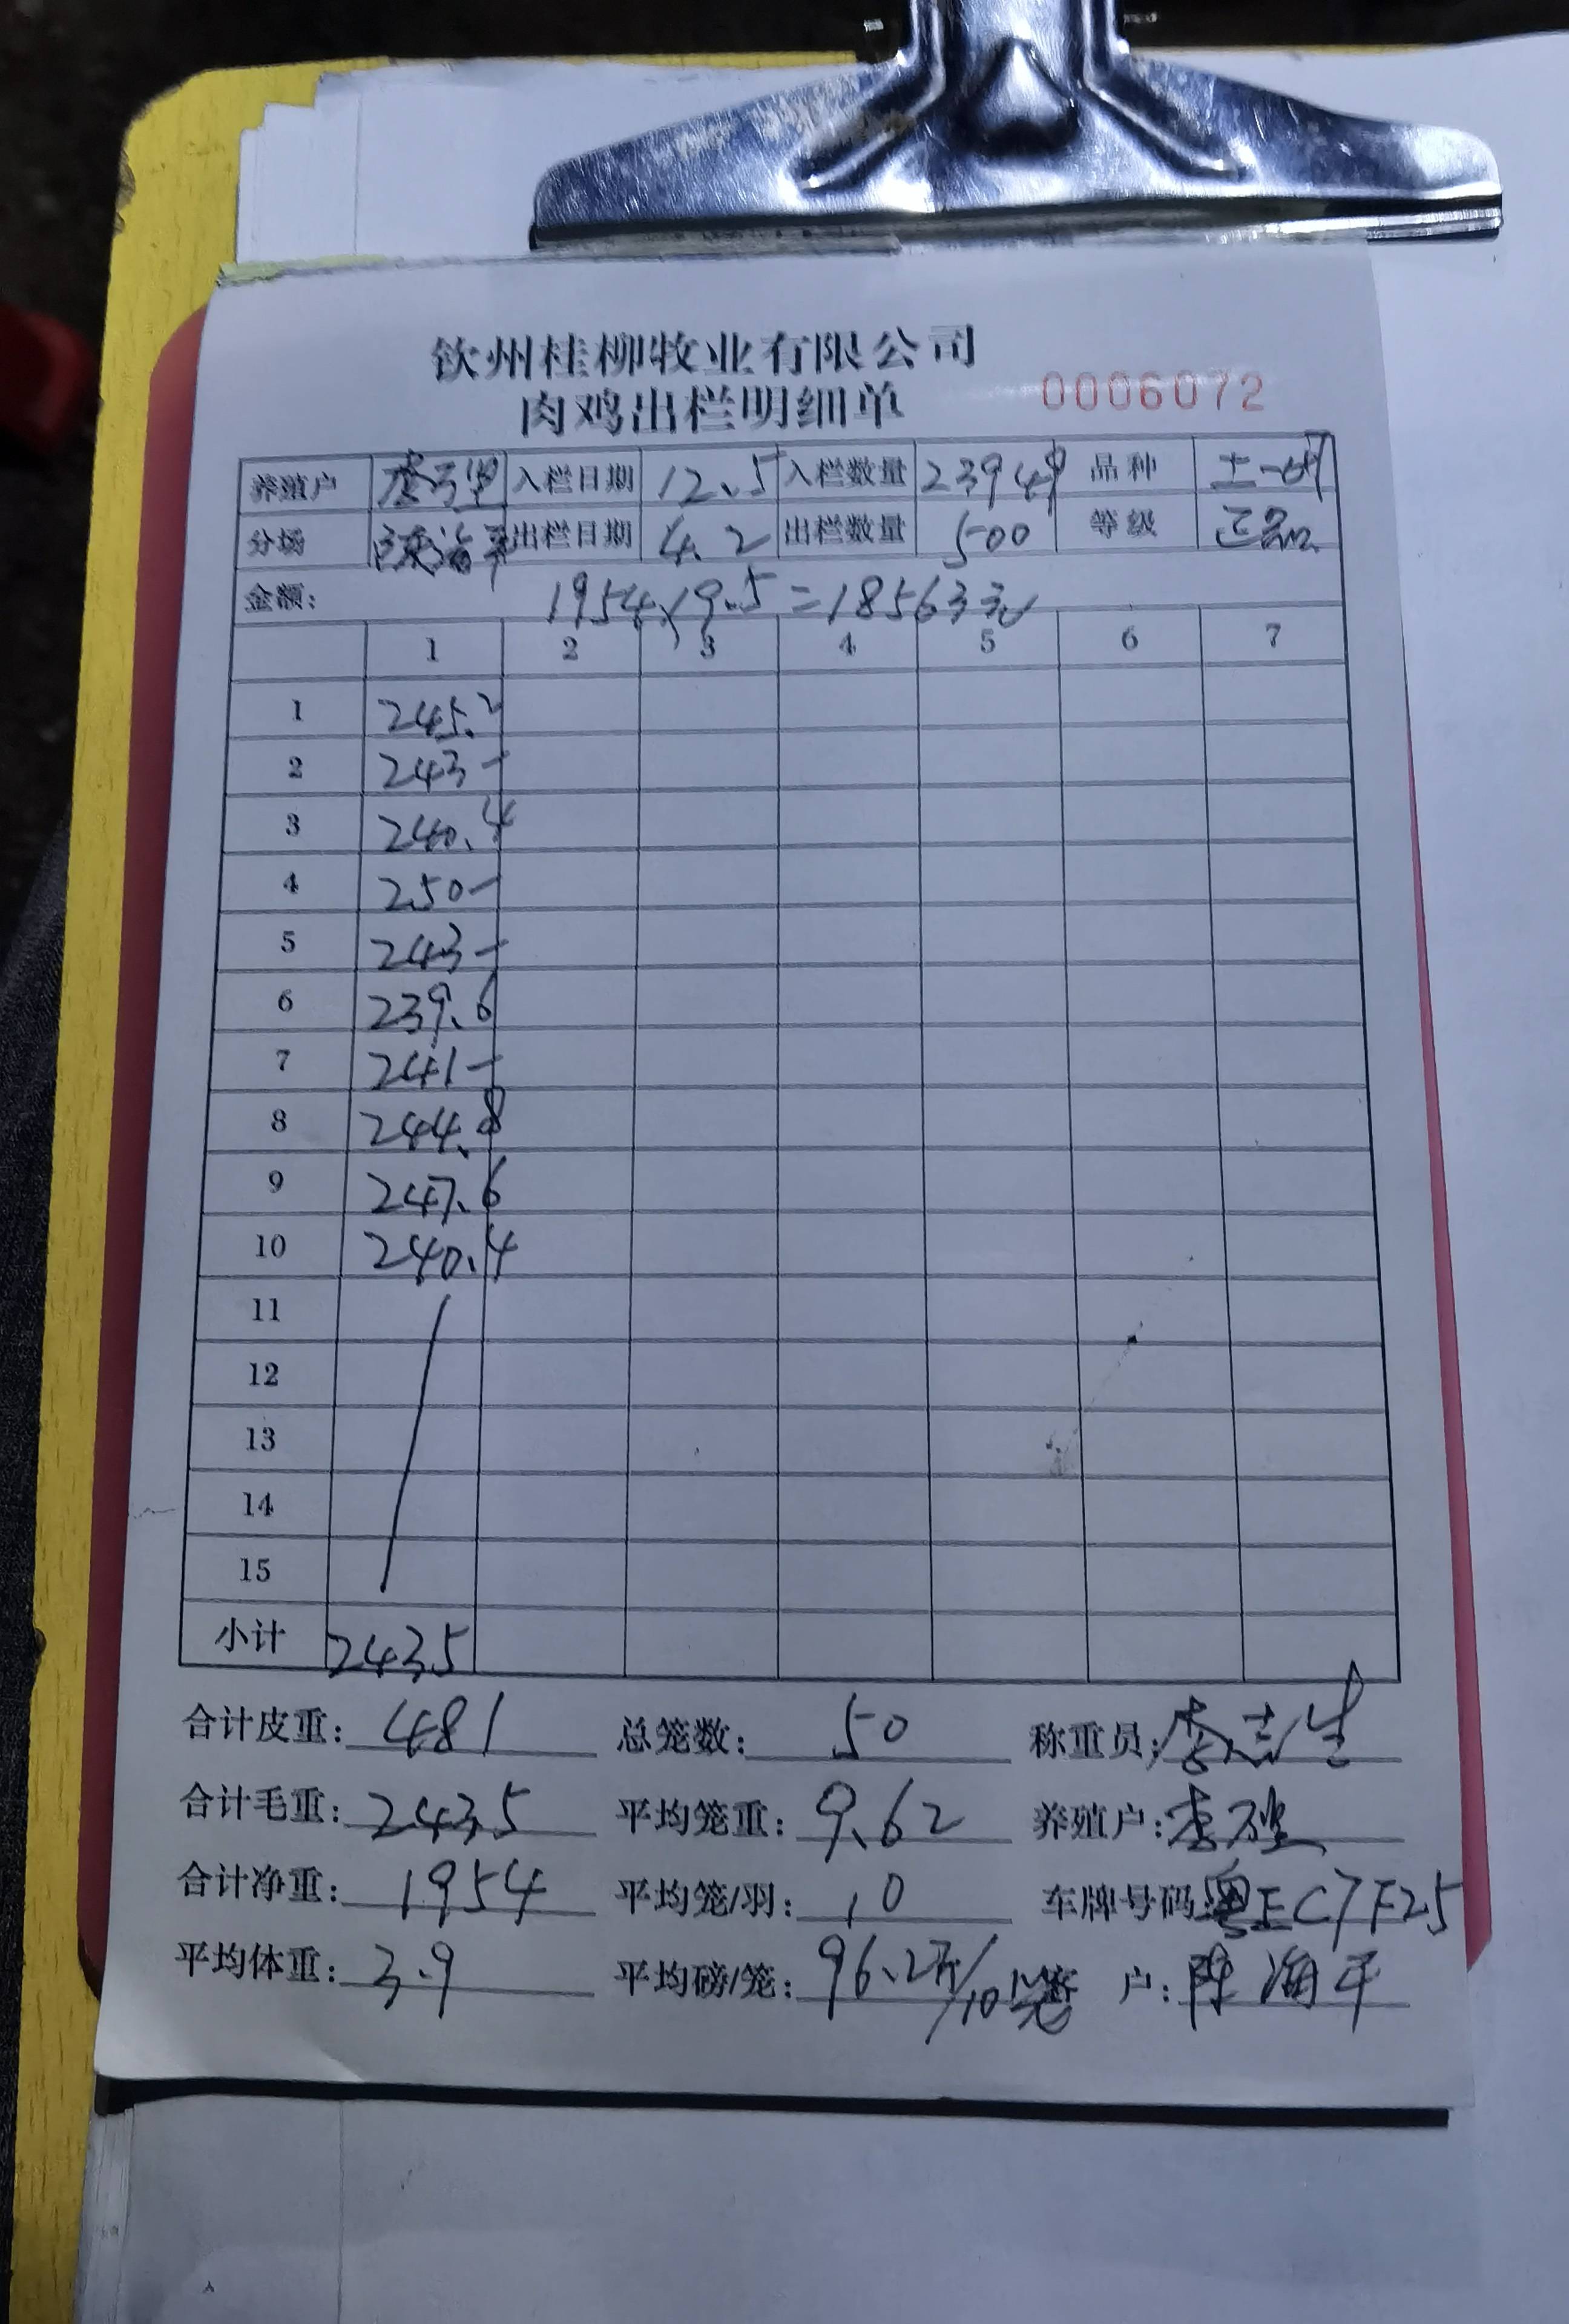 钦州桂柳牧业有限公司
肉鸡出栏明细单 0006072
养殖户 入栏日期 12.5 入栏数量 23949 品种 土一
分场 陈海平 出栏日期 4.2 出栏数量 500 等级 正品
金额: 1954×9.5=18563元
1 2 3 4 5 6 7
1 245.2
2 243-
3 240.4
4 250-
5 243-
6 239.6
7 241-
8 244.8
9 247.6
10 240.4
11
12
13
14
15
小计 2435
合计皮重: 481 总笼数: 50 称重员: 李志生
合计毛重: 2435 平均笼重: 9.62 养殖户: 李
合计净重: 1954 平均笼/羽: 10 车牌号码: 粤EC7F25
平均体重: 3.9 平均磅/笼: 96.2斤/10笼 客户: 陈海平